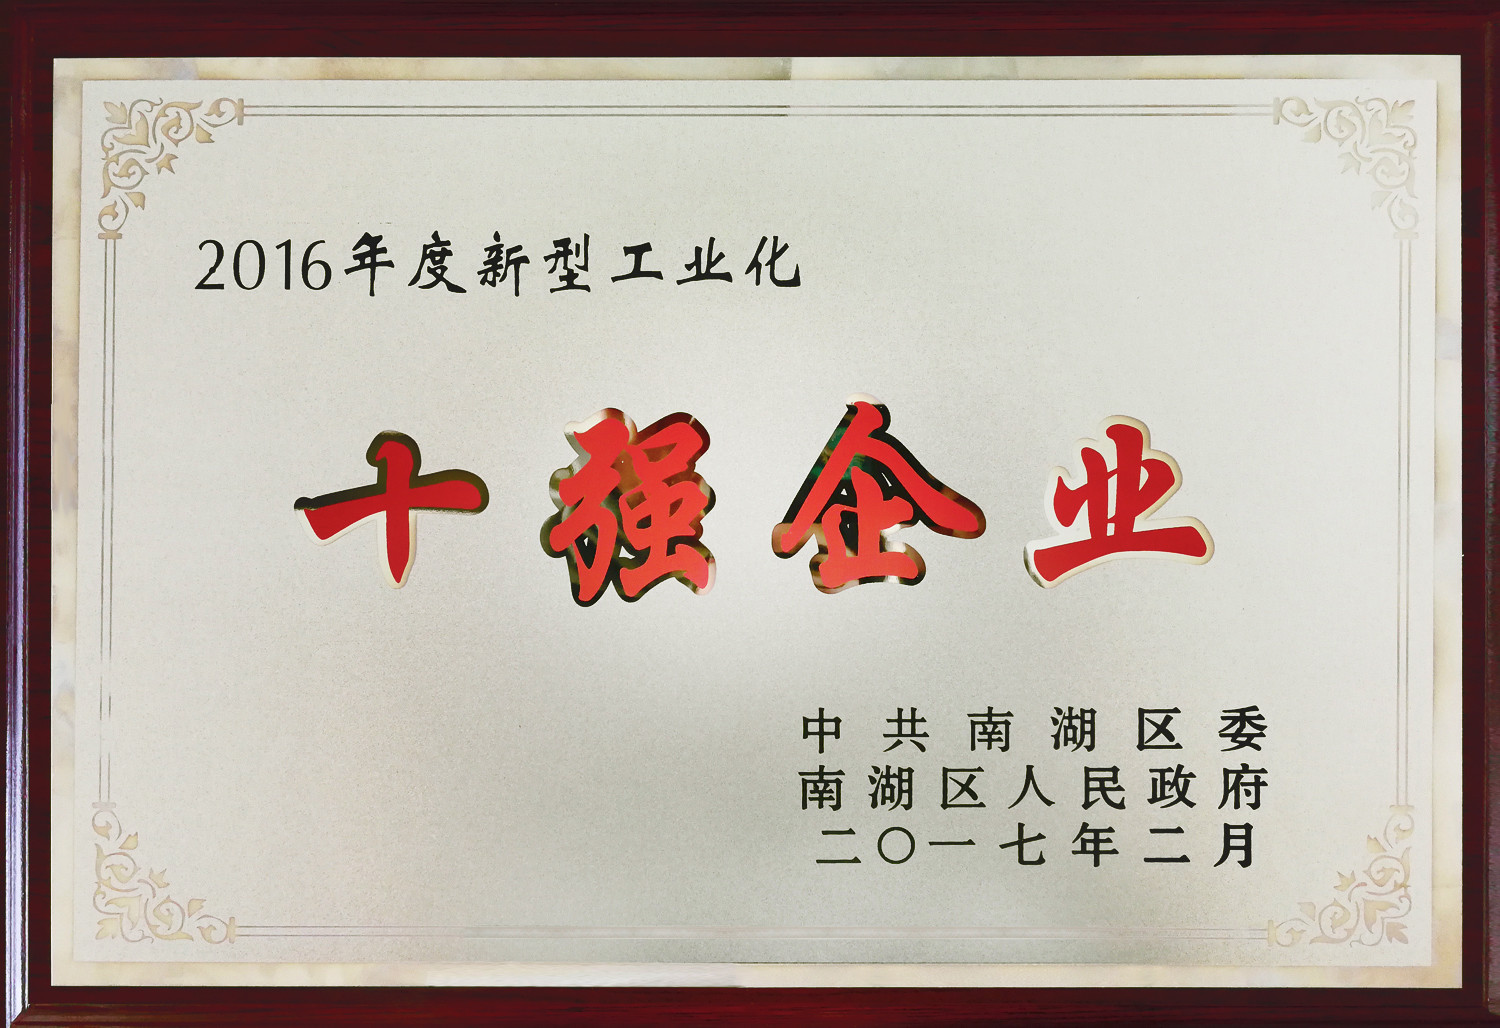 2016年度新型工业化
十强企业
中共南湖区委
南湖区人民政府
二〇一七年二月